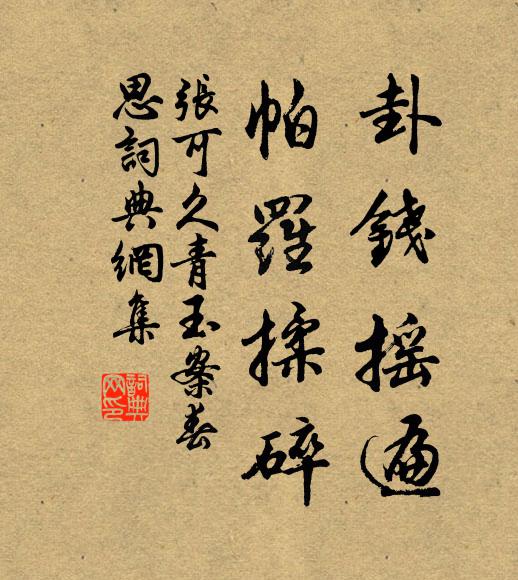 卦錢摇遍
帕羅揉碎
張可久青玉案春
思詞典網集
詞典
网印